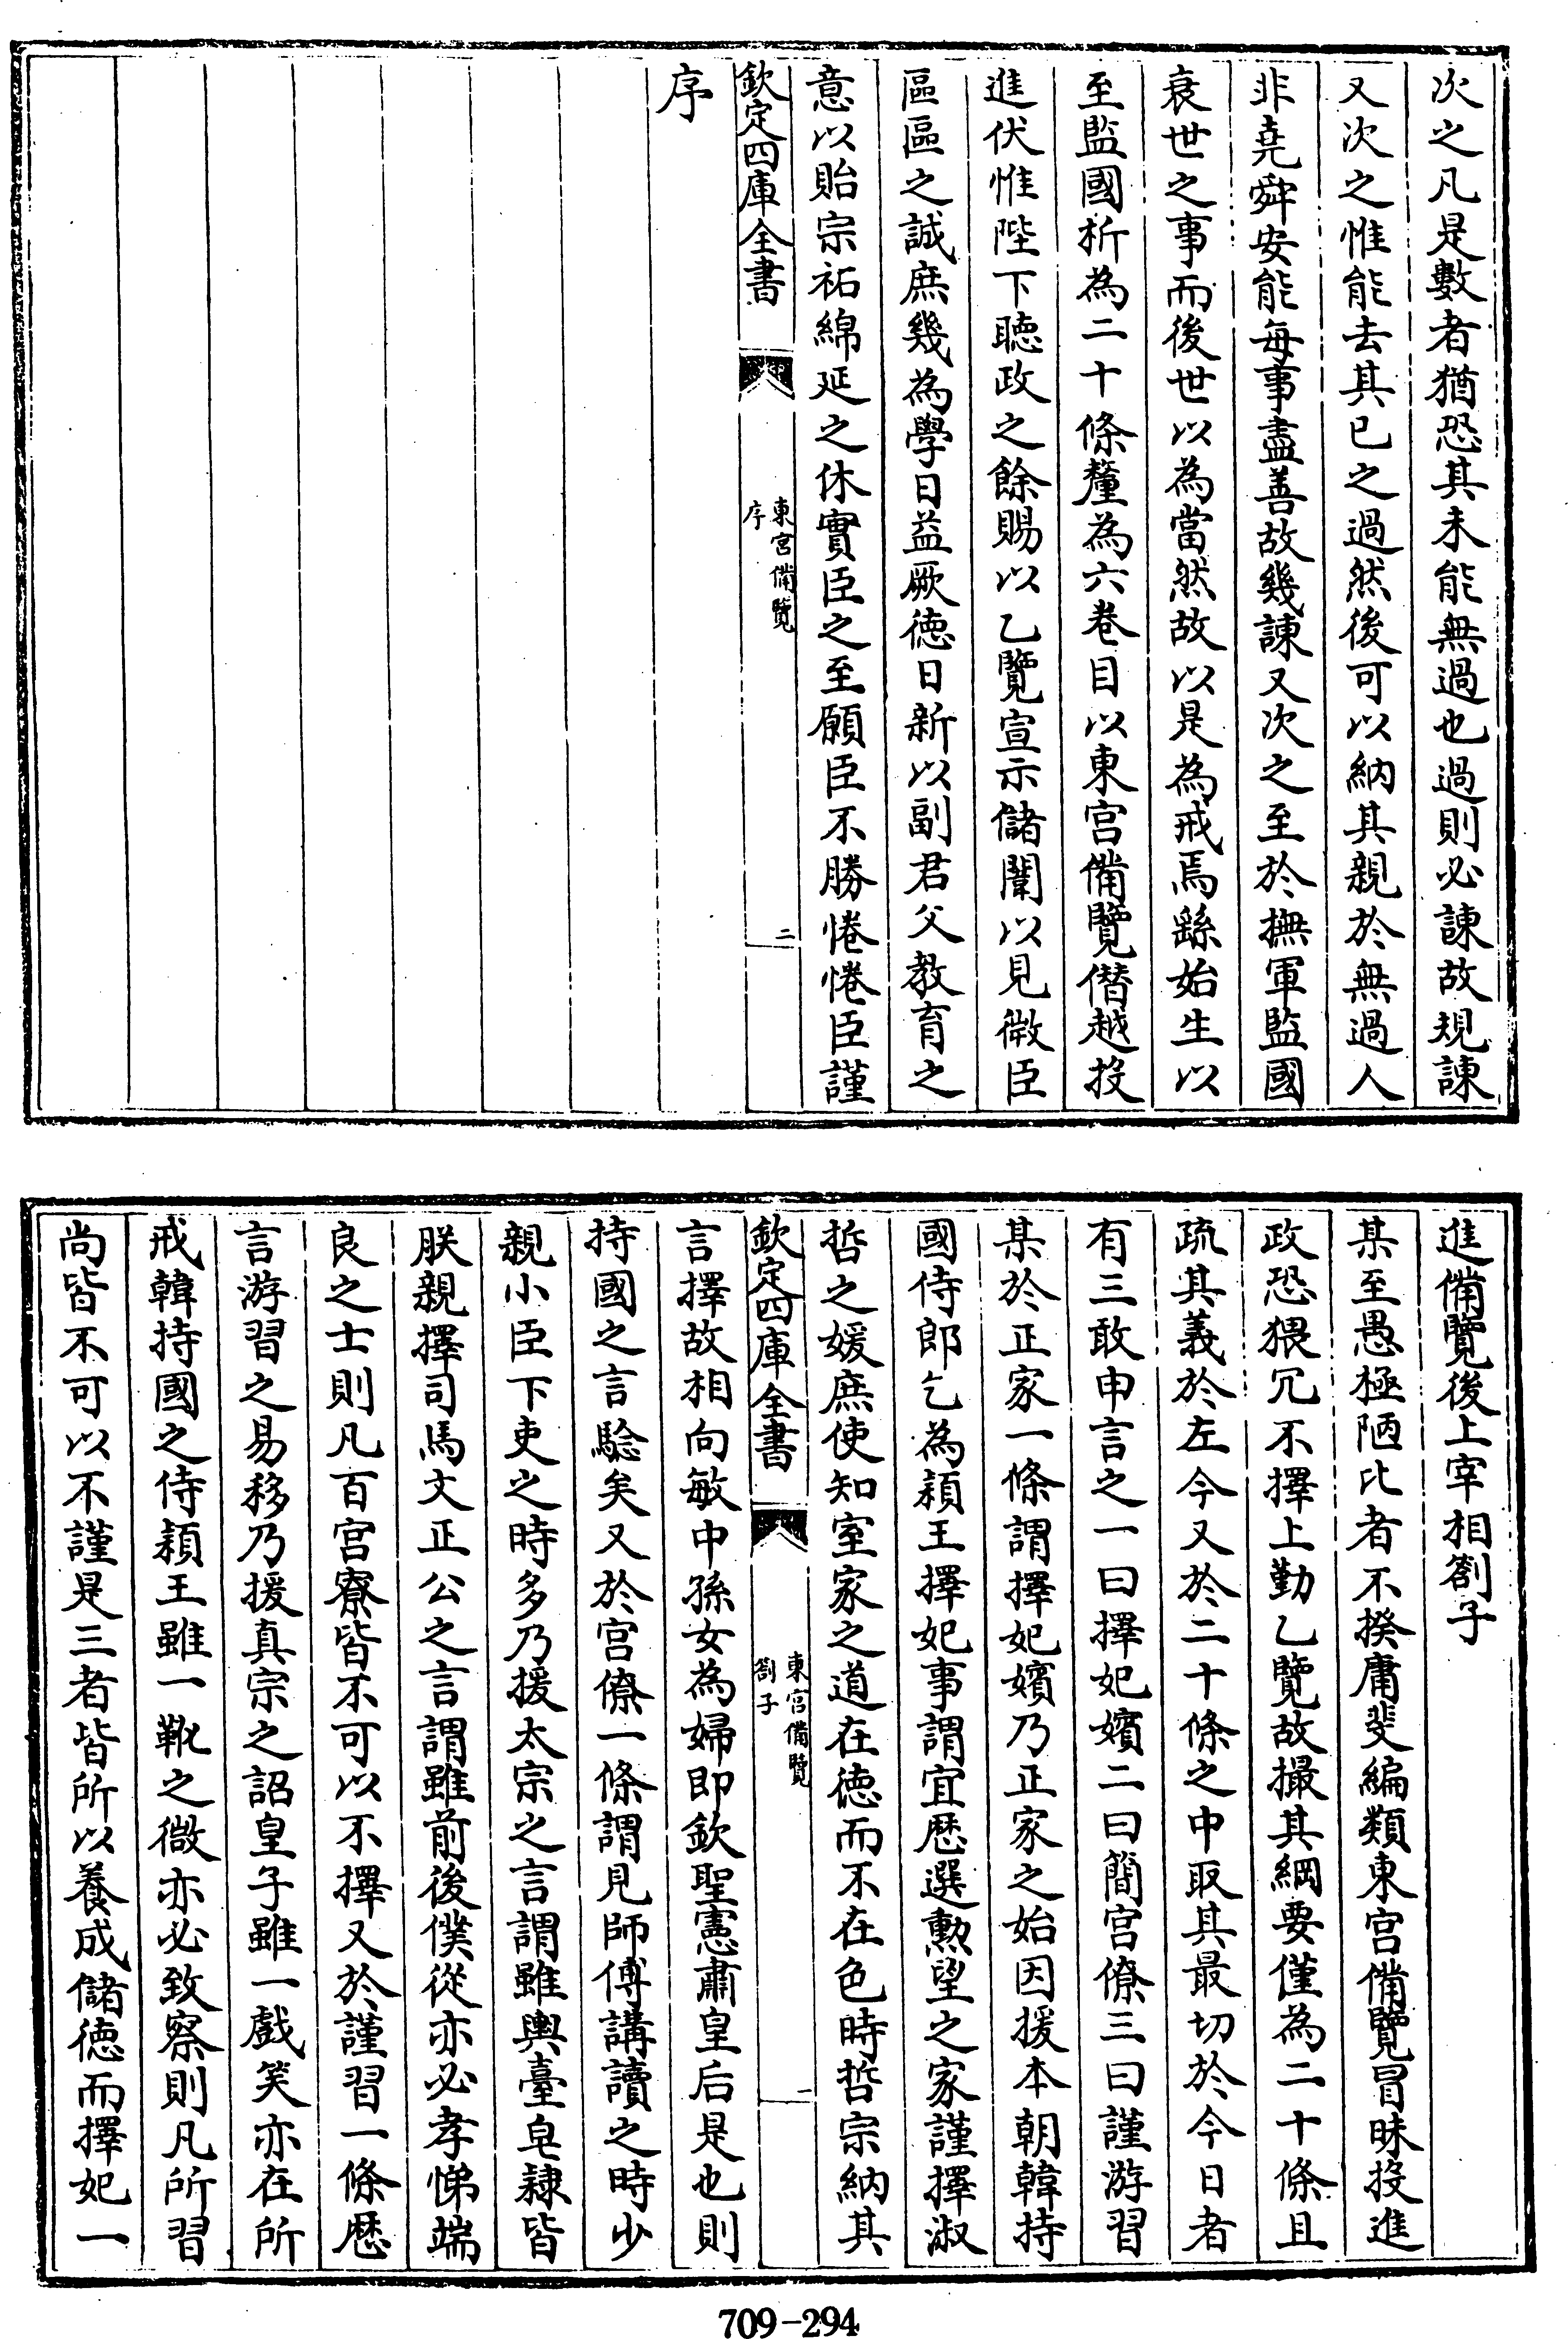 次之凡是數者猶恐其未能無過也過則必諫故規諫
又次之惟能去其已之過然後可以納其親於無過人
非堯舜安能每事盡善故幾諫又次之至於撫軍監國
衰世之事而後世以為當然故以是為戒焉繇始生以
至監國析為二十條釐為六卷目以東宫備覽僭越投
進伏惟陛下聴政之餘賜以乙覽宣示儲闈以見微臣
區區之誠庶幾為學日益厥徳日新以副君父教育之
意以貽宗祏綿延之休實臣之至願臣不勝惓惓臣謹
欽定四庫全書
東宫備覽
序
二
序
進備覽後上宰相劄子
某至愚極陋比者不揆庸斐編類東宫備覽冒昧投進
政恐猥冗不擇上勤乙覽故撮其綱要僅為二十條且
疏其義於左今又於二十條之中取其最切於今日者
有三敢申言之一曰擇妃嬪二曰簡宫僚三曰謹游習
某於正家一條謂擇妃嬪乃正家之始因援本朝韓持
國侍郎乞為潁王擇妃事謂宜厯選勲望之家謹擇淑
哲之媛庶使知室家之道在徳而不在色時哲宗納其
欽定四庫全書
東宫備覽
劄子
一
言擇故相向敏中孫女為婦即欽聖憲肅皇后是也則
持國之言騐矣又於宫僚一條謂見師傅講讀之時少
親小臣下吏之時多乃援太宗之言謂雖輿臺皂隸皆
朕親擇司馬文正公之言謂雖前後僕從亦必孝悌端
良之士則凡百宫寮皆不可以不擇又於謹習一條厯
言游習之易移乃援真宗之詔皇子雖一戲笑亦在所
戒韓持國之侍潁王雖一靴之微亦必致察則凡所習
尚皆不可以不謹是三者皆所以養成儲徳而擇妃一
709-294